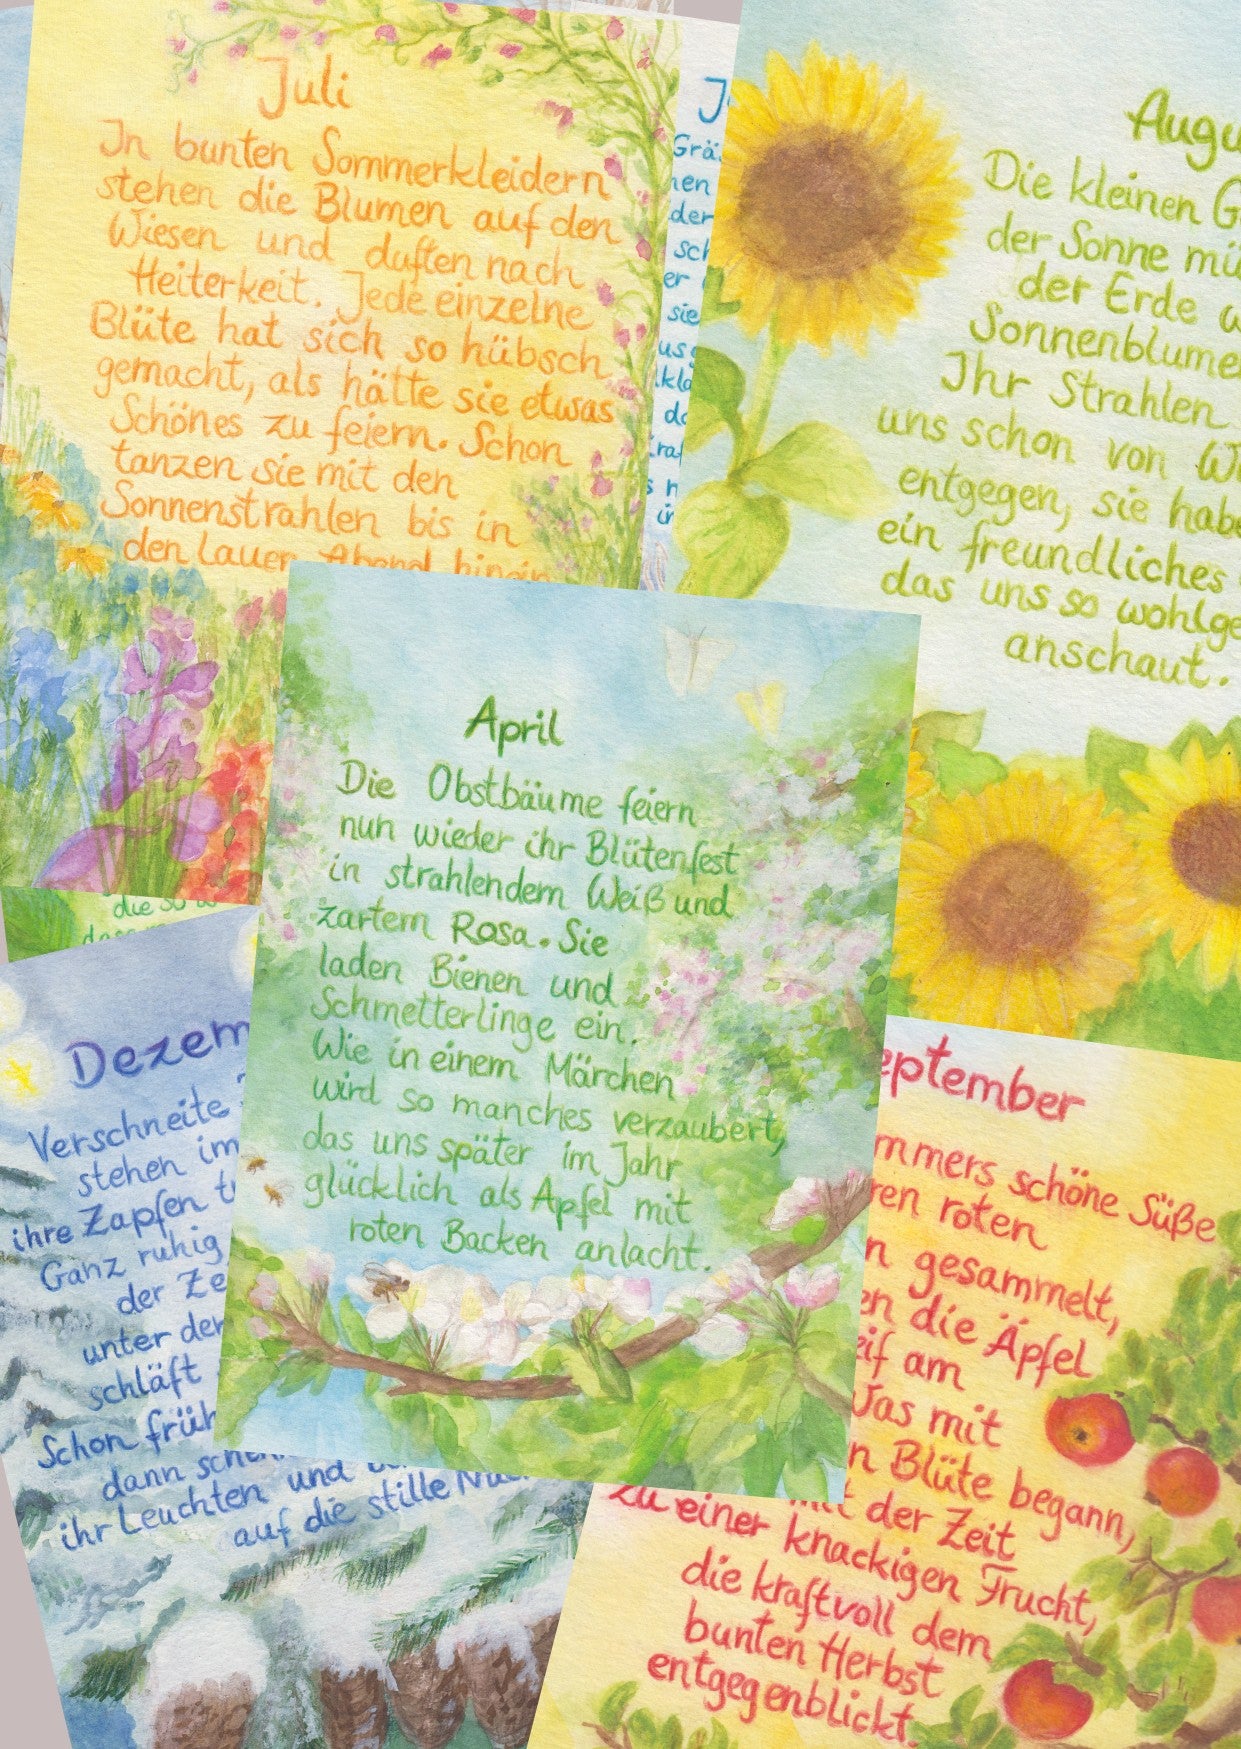 Juli
In bunten Sommerkleidern
stehen die Blumen auf den
Wiesen und duften nach
Heiterkeit. Jede einzelne
Blüte hat sich so hübsch
gemacht, als hätte sie etwas
Schönes zu feiern. Schon
tanzen sie mit den
Sonnenstrahlen bis in
den lauen Abend hinein
Die kleinen
der Sonne
der Erde
Ihr Strahlen
uns schon von
entgegen, sie
ein freundliches
das uns so
anschaut.
April
Die Obstbäume feiern
nun wieder ihr Blütenfest
in strahlendem Weiß und
zartem Rosa. Sie
laden Bienen und
Schmetterlinge ein.
Wie in einem Märchen
wird so manches verzaubert,
das uns später im Jahr
glücklich als Apfel mit
roten Backen anlacht.
die so
Verschneite
stehen im
ihre Zapfen
Ganz ruhig
der
unter der
schläft
Schon
dann
ihr Leuchten und
auf die stille
eptember
mmers schöne Süße
ren roten
n gesammelt,
en die Äpfel
eif am
Was mit
n Blüte begann,
mit der Zeit
zu einer knackigen Frucht,
die kraftvoll dem
bunten Herbst
entgegenblickt.